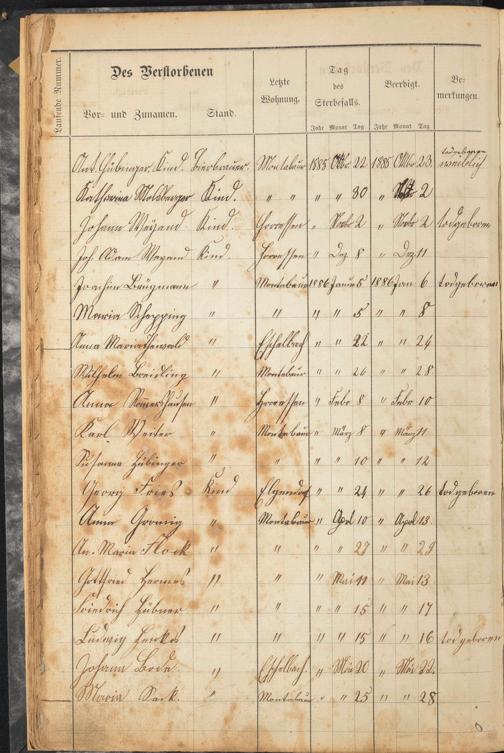 Laufende Nummer. Des Verstorbenen Letzte Wohnung. Tag des Sterbefalls. Beerdigt. Bemerkungen.
Vor- und Zunamen. Stand. Jahr Monat Tag Jahr Monat Tag
todgeboren
Ant. Hübinger Kind Bierbrauer. Montabaur 1885 Oktbr. 22 1885 Oktbr 23 weiblich
Katharina Molsberger Kind. " " " 30 " 2
Johann Weyand Kind. Horressen " Novbr 2 " Novbr 2 todgeboren
Joh. Adam Weyand Kind Horressen " Dez 8 " Dez 11
Joachim Brügmann " Montabaur 1886 Januar 5 1886 Jan 6 todgeboren
Maria Schepping " " " " 5 " " 8
Anna Maria " Eschelbach " " 22 " " 24
Wilhelm Breidling " Montabaur " " 26 " " 28
Anna " Horressen " Febr 8 " Febr 10
Karl Weiter " Montabaur " März 8 " März 11
Susanna Hübinger " " " " 10 " " 12
Georg Fries Kind Elgendorf " " 24 " " 26 todgeboren
Anna " Montabaur " April 10 " April 13
An. Maria Flock " " " " 27 " " 29
Gottfried Hermes " " " Mai 11 " Mai 13
Friedrich Hübner " " " " 15 " " 17
Ludwig Henkes " " " " 15 " " 16 todgeboren
Johann Bode " Eschelbach. " Mai 20 " Mai 22
Maria Sack. " Montabaur " " 25 " " 28